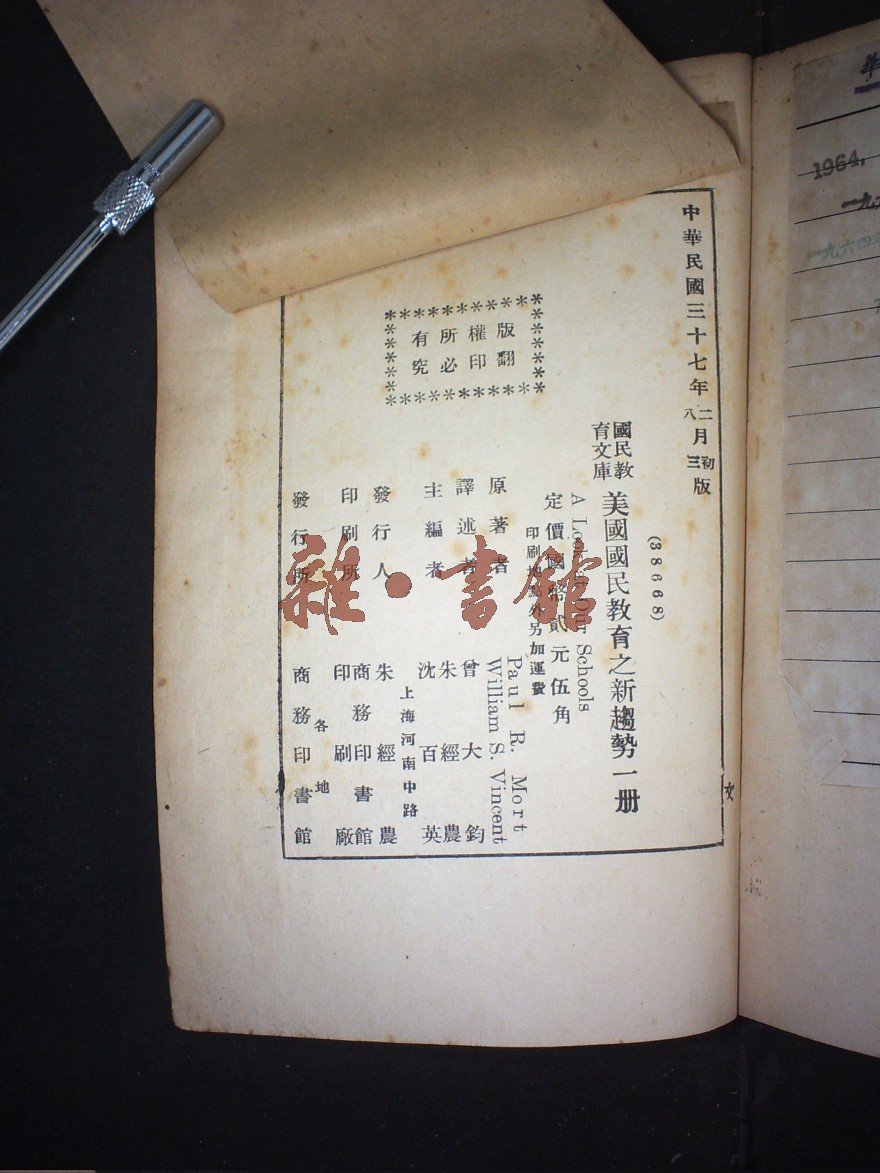 中華民國三十七年二月初版
八 三
(38668)
國民教育文庫 美國國民教育之新趨勢一册
A Look at Our Schools
定價國幣貳元伍角
印刷地點外另加運費
原著者 Paul R. Mort
William S. Vincent
譯述者 曾大鈞
主編者 朱經農
沈百英
上海河南中路
發行人 朱經農
印刷所 商務印書館
印刷廠
各地
發行所 商務印書館
版權所有
翻印必究
文
華
1964,
一九六四年
雜·書館